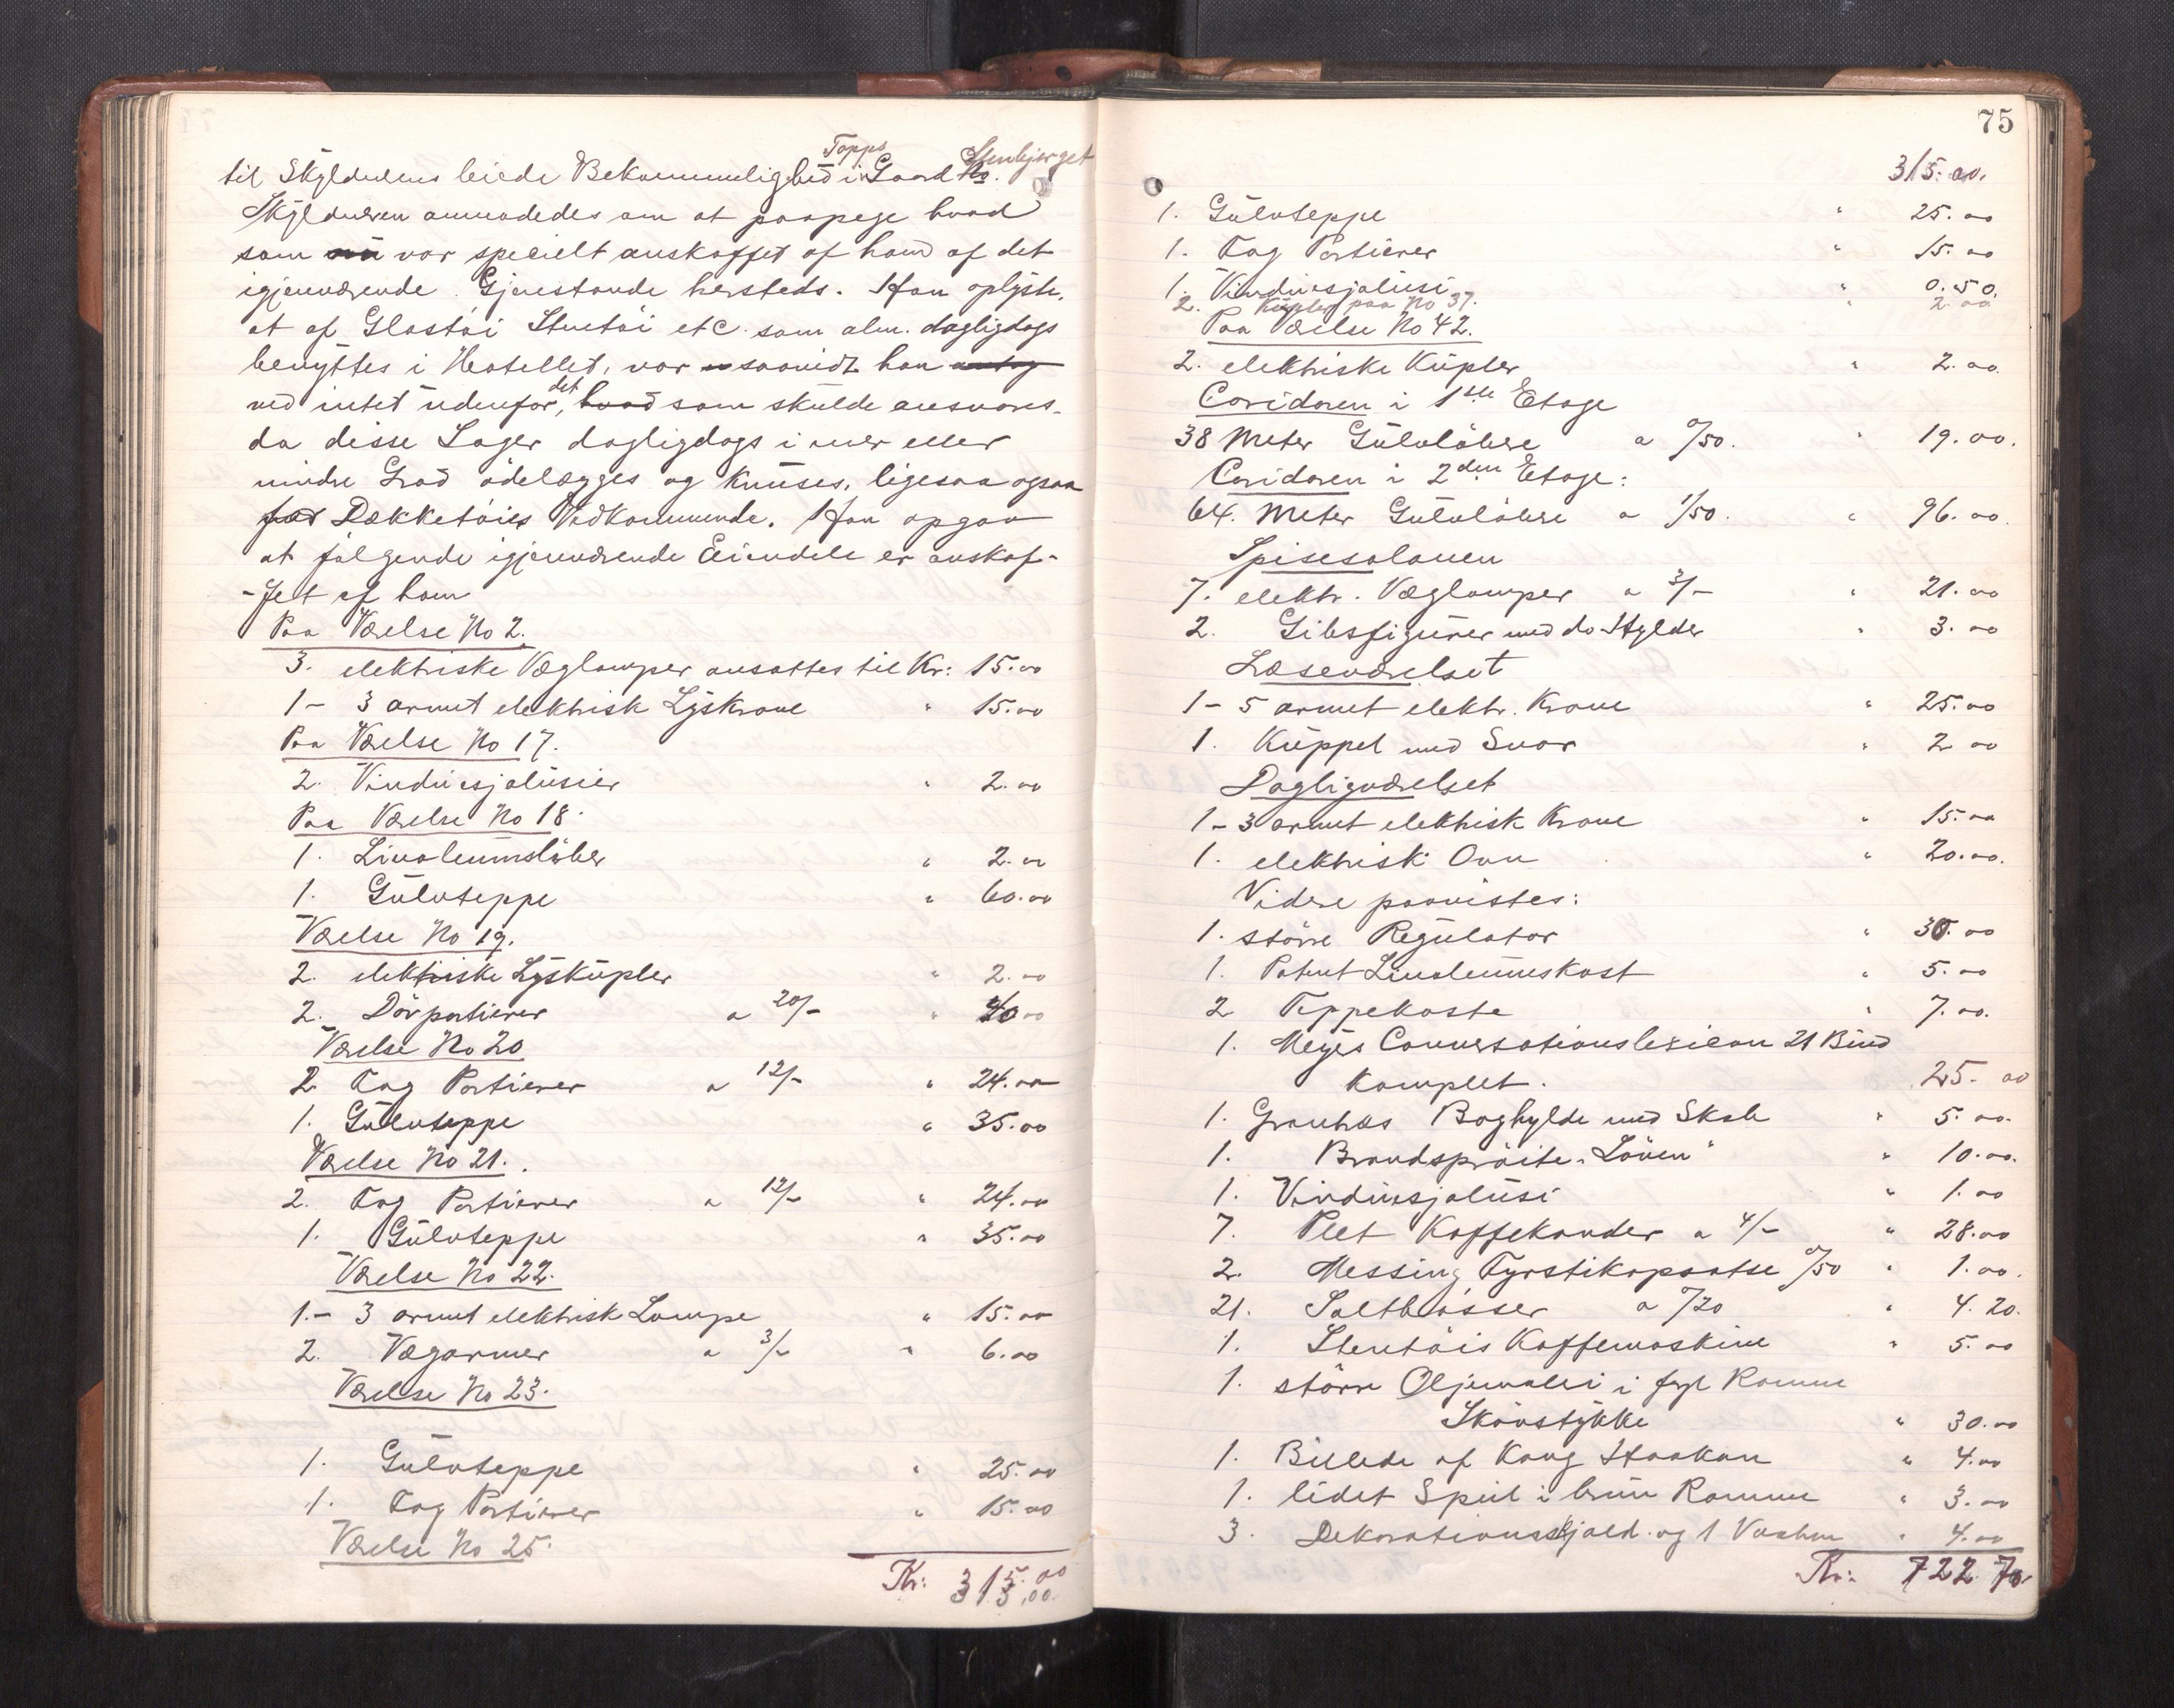 til Skyldnerens leiede Bekvemmelighed i Topps Gaard No. Stenbjerget
Skyldneren anmodedes om at paapege hvad
som nu var specielt anskaffet af ham af det
igjenværende Gjenstande hersteds. Han oplyste,
at af Glastøi Stentøi etc. som alm. dagligdags
benyttes i Hotellet, var saavidt han antog
ved intet udenfor, det hvad som skulde ansvares,
da disse Sager dagligdags i mer eller
mindre Grad ødelægges og knuses, ligesaa ogsaa
for Dækketøies Vedkommende. Han opgav
at følgende igjenværende Eiendele er anskaf-
-fet af ham
Paa Værelse No 2.
3. elektriske Væglamper ansattes til Kr: 15.00
1 - 3 armet elektrisk Lyskrone " 15.00
Paa Værelse No 17.
2. Vinduesjalusier " 2.00
Paa Værelse No 18.
1. Linoleumsløber " 2.00
1. Gulvteppe " 60.00
Værelse No 19.
2. elektriske Lyskupler " 2.00
2. Dørportierer a 20/- " 40.00
Værelse No 20
2 Fag Portierer a 12/- " 24.00
1. Gulvteppe " 35.00
Værelse No 21.
2. Fag Portierer a 12/- " 24.00
1. Gulvteppe " 35.00
Værelse No 22.
1.- 3 armet elektrisk Lampe " 15.00
2. Vægarmer a 3/- " 6.00
Værelse No 23.
1. Gulvteppe " 25.00
1. Fag Portierer " 15.00
Værelse No 25.
Kr: 315.00
315,00.
75
315.00.
1. Gulvteppe " 25.00
1. Fag Portierer " 15.00
1. Vinduesjalusi " 0.50.
2. Kupler paa No 37. " 2.00
Paa Værelse No 42.
2. elektriske Kupler " 2.00.
Coridoren i 1ste Etage
38 Meter Gulvløbere a 0/50. " 19.00.
Coridoren i 2den Etage:
64. Meter Gulvløbere a 1/50. " 96.00.
Spisesalonen
7. elektr. Væglamper a 3/- " 21.00
2. Gibsfigurer med do Hylder " 3.00
Læseværelset
1 - 5 armet elektr. Krone " 25.00
1. Kuppel med Snor " 2 00
Dagligværelset
1 - 3 armet elektrisk Krone " 15.00
1. elektrisk Ovn " 20.00.
Videre paavistes:
1. større Regulator " 30.00
1. Patent Linoleumskost " 5.00
2 Teppekoste " 7.00.
1. Meyes Conversationslexicon 21 Bind
komplet. 25. 00
1. Grønbes Boghylde med Skab " 5.00.
1. Brandsprøite "Løven" " 10.00.
1. Vinduesjalusi " 1.00
7. Plet Kaffekander a 4/- " 28.00
2. Messing Fyrstikopsatse 0/50 " 1.00.
21. Saltbøsser a 0/20 " 4.20.
1. Stentøis Kaffemaskine " 5.00
1. større Oljemaleri i fgl Ramme
Skovstykke " 30.00
1. Billede af Kong Haakon " 4.00
1. lidet Speil i brun Ramme " 3.00
3. Dekorationsskjold og 1 Vashm " 4.00
Kr: 722.70.